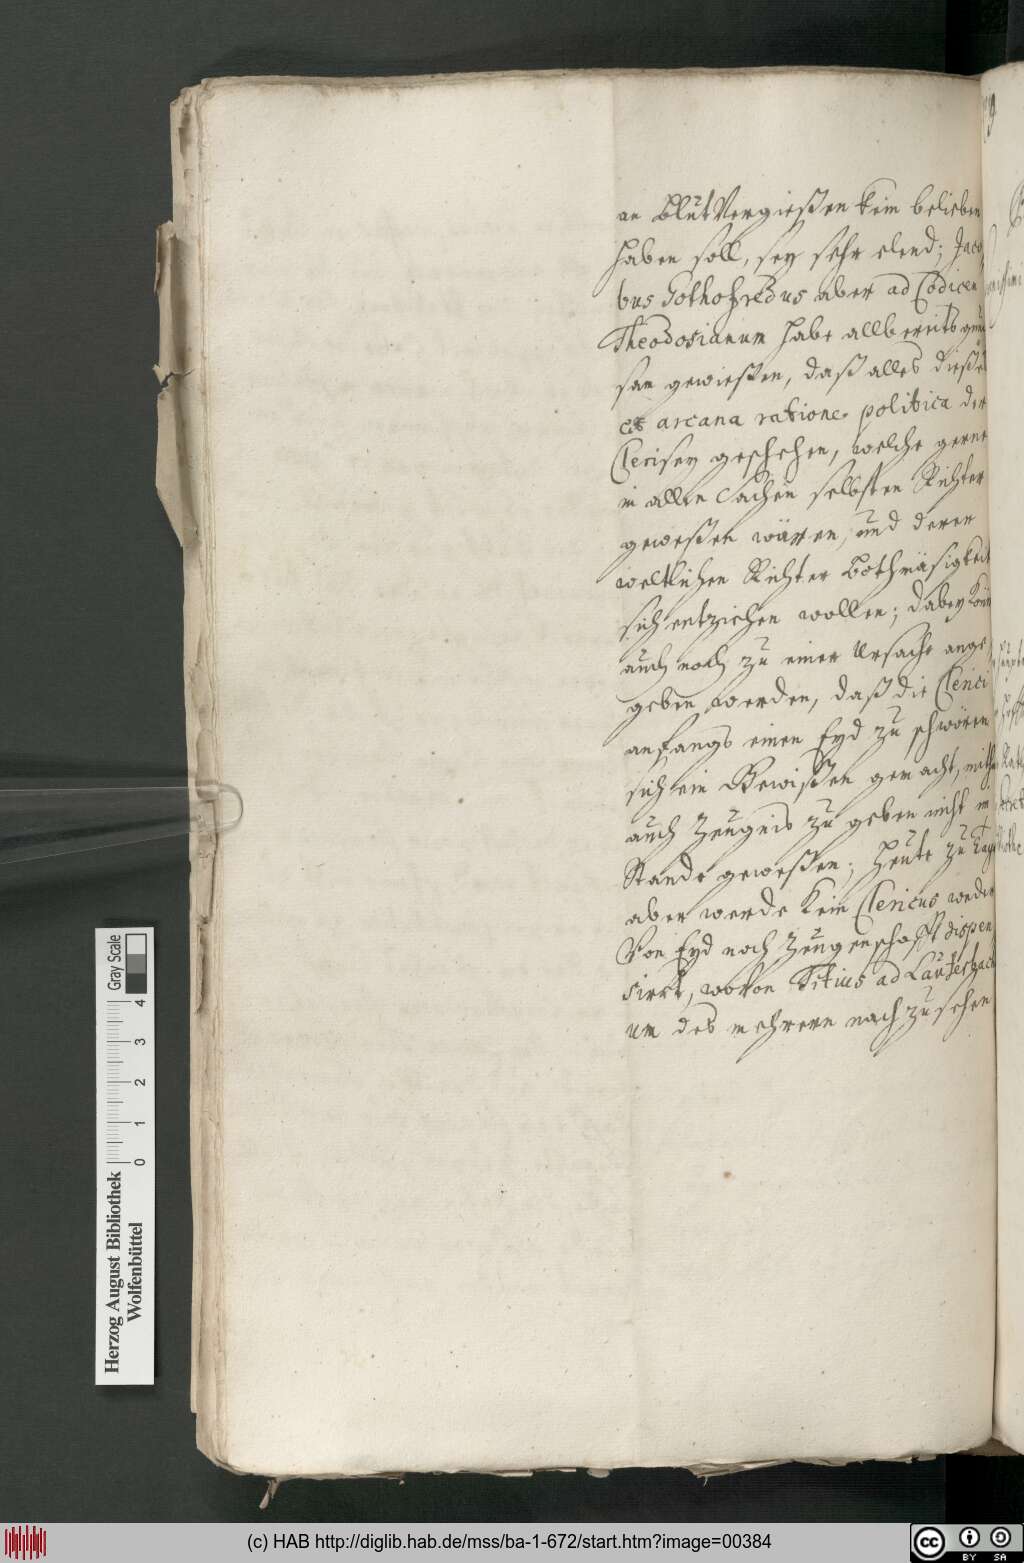 an BlutVergießen kein belieben
haben soll, sey sehr elend; Jaco
bus Gothofredus aber ad Codicem
Theodosianum habe allbereits gnug
sam gewießen, daß alles dießes
ex arcana ratione politica der
Clerisey geschehen, welche gerne
in allen Sachen selbsten Richter
gewesen wären, und derer
weltlichen Richter Bothmäsigkeit
sich entziehen wollen; dabey könn
auch noch zu einer Ursache ange
geben werden, daß die Clerici
anfangs einen Eyd zu schwören
sich ein Gewißen gemacht, mithin
auch Zeugnis zu geben nicht im
Stande gewesen; heute zu Tage
aber werde kein Clericus weder
Von Eyd noch Zeugenschafft dispen
sirt, wovon Titius ad Lauterbach
um des mehrern nachzusehen
Herzog August Bibliothek
Wolfenbüttel
0 1 2 3 4
Gray Scale
(c) HAB http://diglib.hab.de/mss/ba-1-672/start.htm?image=00384
cc BY SA